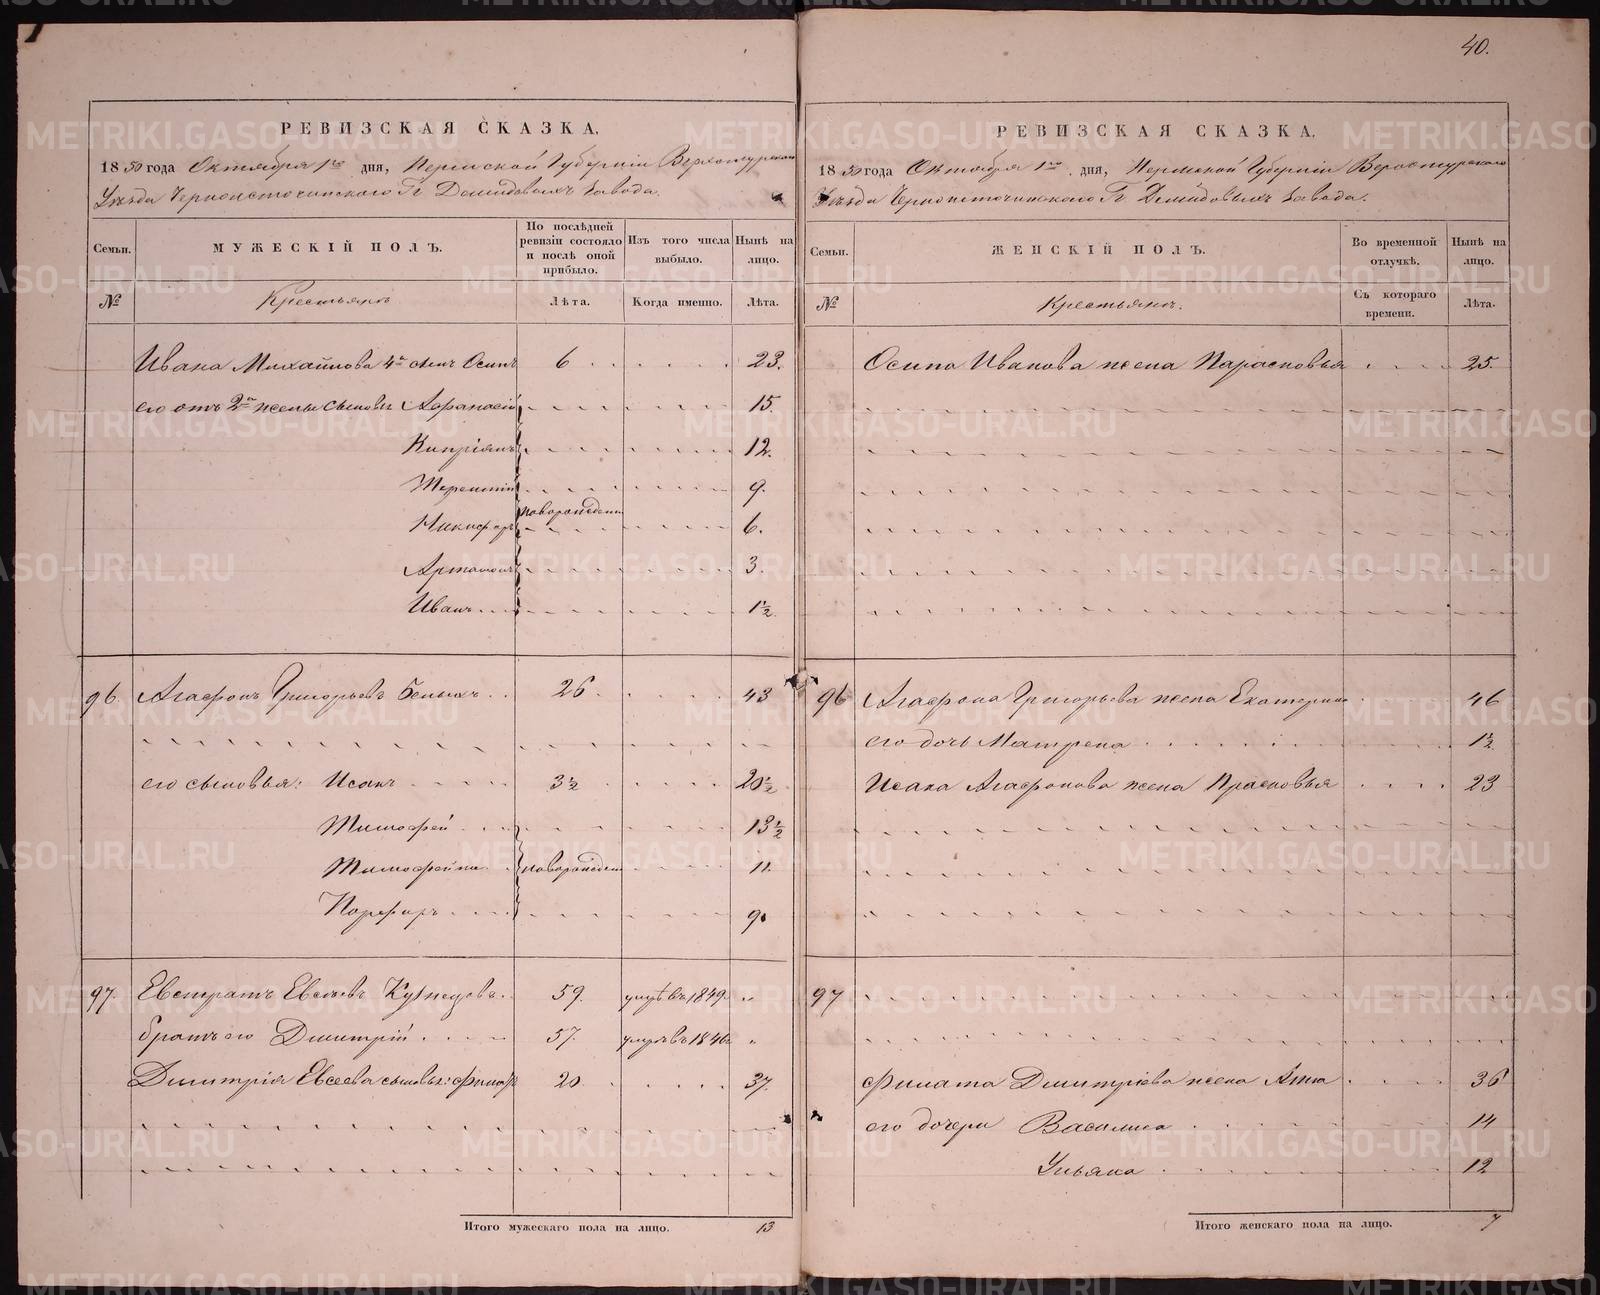 40.
РЕВИЗСКАЯ СКАЗКА.
1850 года Октября 1го дня, Пермской Губерніи Верхотурскаго
Уѣзда Черноисточинскаго Гг Демидовыхъ завода.
Семьи. МУЖЕСКІЙ ПОЛЪ. По послѣдней ревизіи состояло и послѣ оной прибыло. Изъ того числа выбыло. Нынѣ на лицо.
№ Крестьянъ Лѣта. Когда именно. Лѣта.
Ивана Михайлова 4й сынъ Осипъ 6 23.
его отъ 2й жены сыновья Афанасій 15.
Кипріянъ 12.
Терентій 9.
Никифоръ новорожден 6.
Артамонъ 3.
Иванъ 1½
96. Агафонъ Григорьевъ Белыхъ 26. 43
его сыновья: Исакъ 3½ 20½
Тимофей 13½
Тимофейка новорожден 11.
Порфиръ 9.
97. Евстратъ Евсеевъ Кузнецовъ 59. умре въ 1849 "
братъ его Дмитрій 57. умре въ 1846 "
Дмитрія Евсеева сыновья: Филатъ 20. 37.
Итого мужескаго пола на лицо. 13
РЕВИЗСКАЯ СКАЗКА.
1850 года Октября 1го дня, Пермской Губерніи Верхотурскаго
Уѣзда Черноисточинскаго Гг Демидовыхъ завода.
Семьи. ЖЕНСКІЙ ПОЛЪ. Во временной отлучкѣ. Нынѣ на лицо.
№ Крестьянъ. Съ котораго времени. Лѣта.
Осипа Иванова жена Парасковья 25.
96 Агафона Григорьева жена Екатерина 46
его дочь Матрена 1½
Исака Агафонова жена Прасковья 23
97
Филата Дмитріева жена Анна 36
его дочери Василиса 14
Ульяна 12
Итого женскаго пола на лицо. 7
METRIKI.GASO-URAL.RU